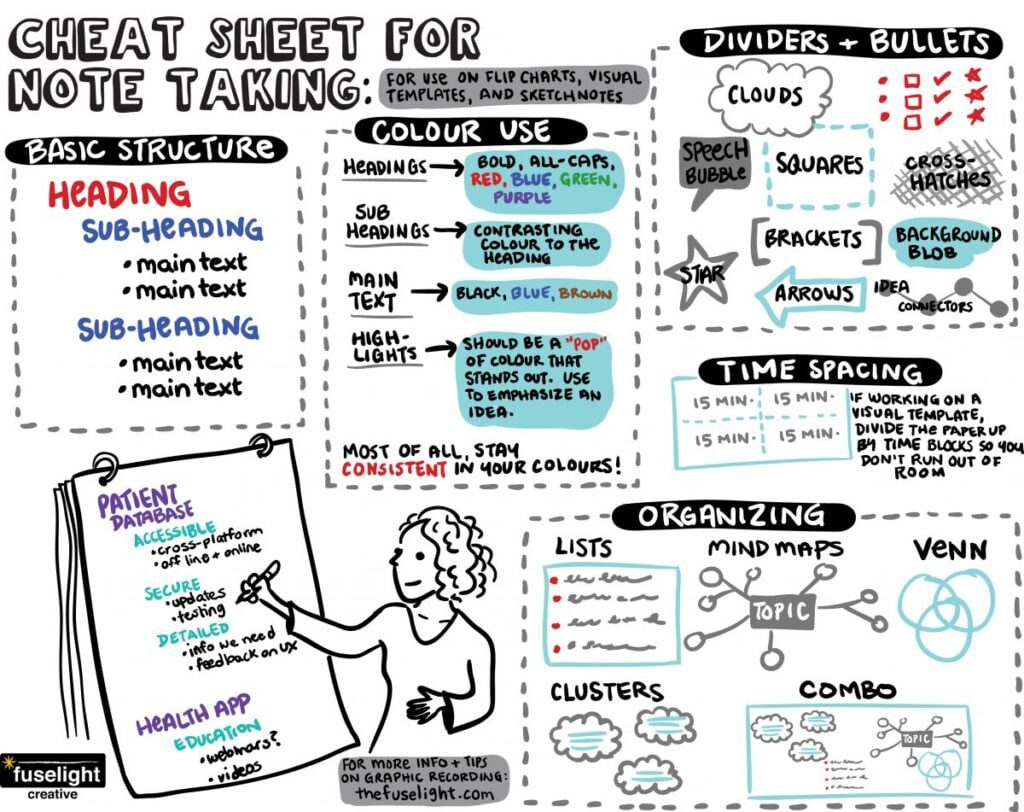 CHEAT SHEET FOR
NOTE TAKING:
FOR USE ON FLIP CHARTS, VISUAL
TEMPLATES, AND SKETCHNOTES
BASIC STRUCTURE
HEADING
SUB-HEADING
• main text
• main text
SUB-HEADING
• main text
• main text
COLOUR USE
HEADINGS → BOLD, ALL-CAPS,
RED, BLUE, GREEN,
PURPLE
SUB
HEADINGS → CONTRASTING
COLOUR TO THE
HEADING
MAIN
TEXT → BLACK, BLUE, BROWN
HIGH-
LIGHTS → SHOULD BE A "POP"
OF COLOUR THAT
STANDS OUT. USE
TO EMPHASIZE AN
IDEA.
MOST OF ALL, STAY
CONSISTENT IN YOUR COLOURS!
DIVIDERS + BULLETS
CLOUDS
SPEECH
BUBBLE
SQUARES
CROSS-
HATCHES
[BRACKETS]
BACKGROUND
BLOB
STAR
ARROWS
IDEA
CONNECTORS
TIME SPACING
15 MIN. 15 MIN.
15 MIN. 15 MIN.
IF WORKING ON A
VISUAL TEMPLATE,
DIVIDE THE PAPER UP
BY TIME BLOCKS SO YOU
DON'T RUN OUT OF
ROOM
PATIENT
DATABASE
ACCESSIBLE
• cross-platform
• off line + online
SECURE
• updates
• testing
DETAILED
• info we need
• feedback on UX
HEALTH APP
EDUCATION
• webinars?
• videos
ORGANIZING
LISTS
MIND MAPS
TOPIC
VENN
CLUSTERS
COMBO
TOPIC
fuselight
creative
FOR MORE INFO + TIPS
ON GRAPHIC RECORDING:
thefuselight.com